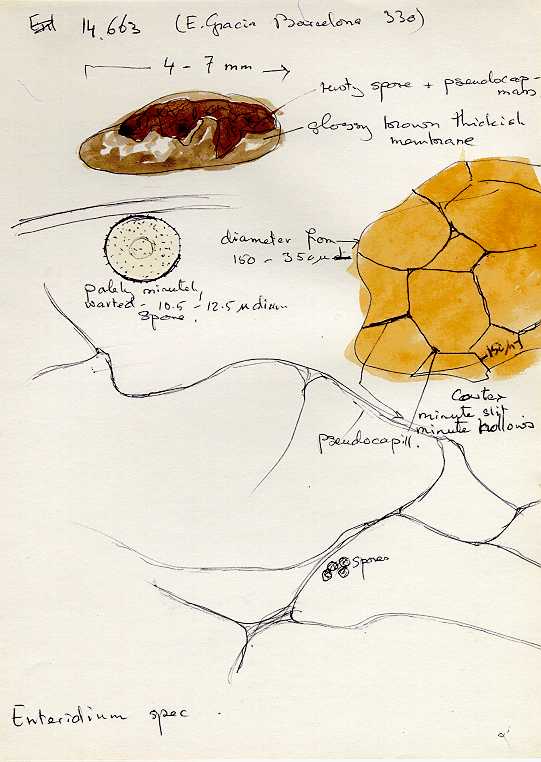 14.663 (E. Gracia Barcelona 330)
4 - 7 mm
rusty spore + pseudocap-
mass
glossy brown thickish
membrane
diameter from
150 - 350 µ
palely minutely
warted - 10.5 - 12.5 µ diam
spore.
150 µ
Cortex
minute slit
minute hollows
pseudocapill.
spores
Enteridium spec.